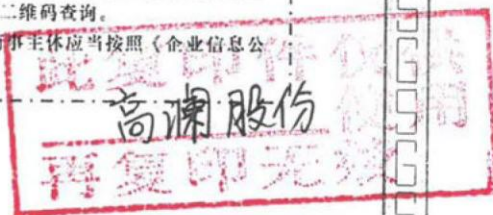 二维码查询。
事主体应当按照《企业信息公
此复印件仅供
高澜股份
使用
再复印无效